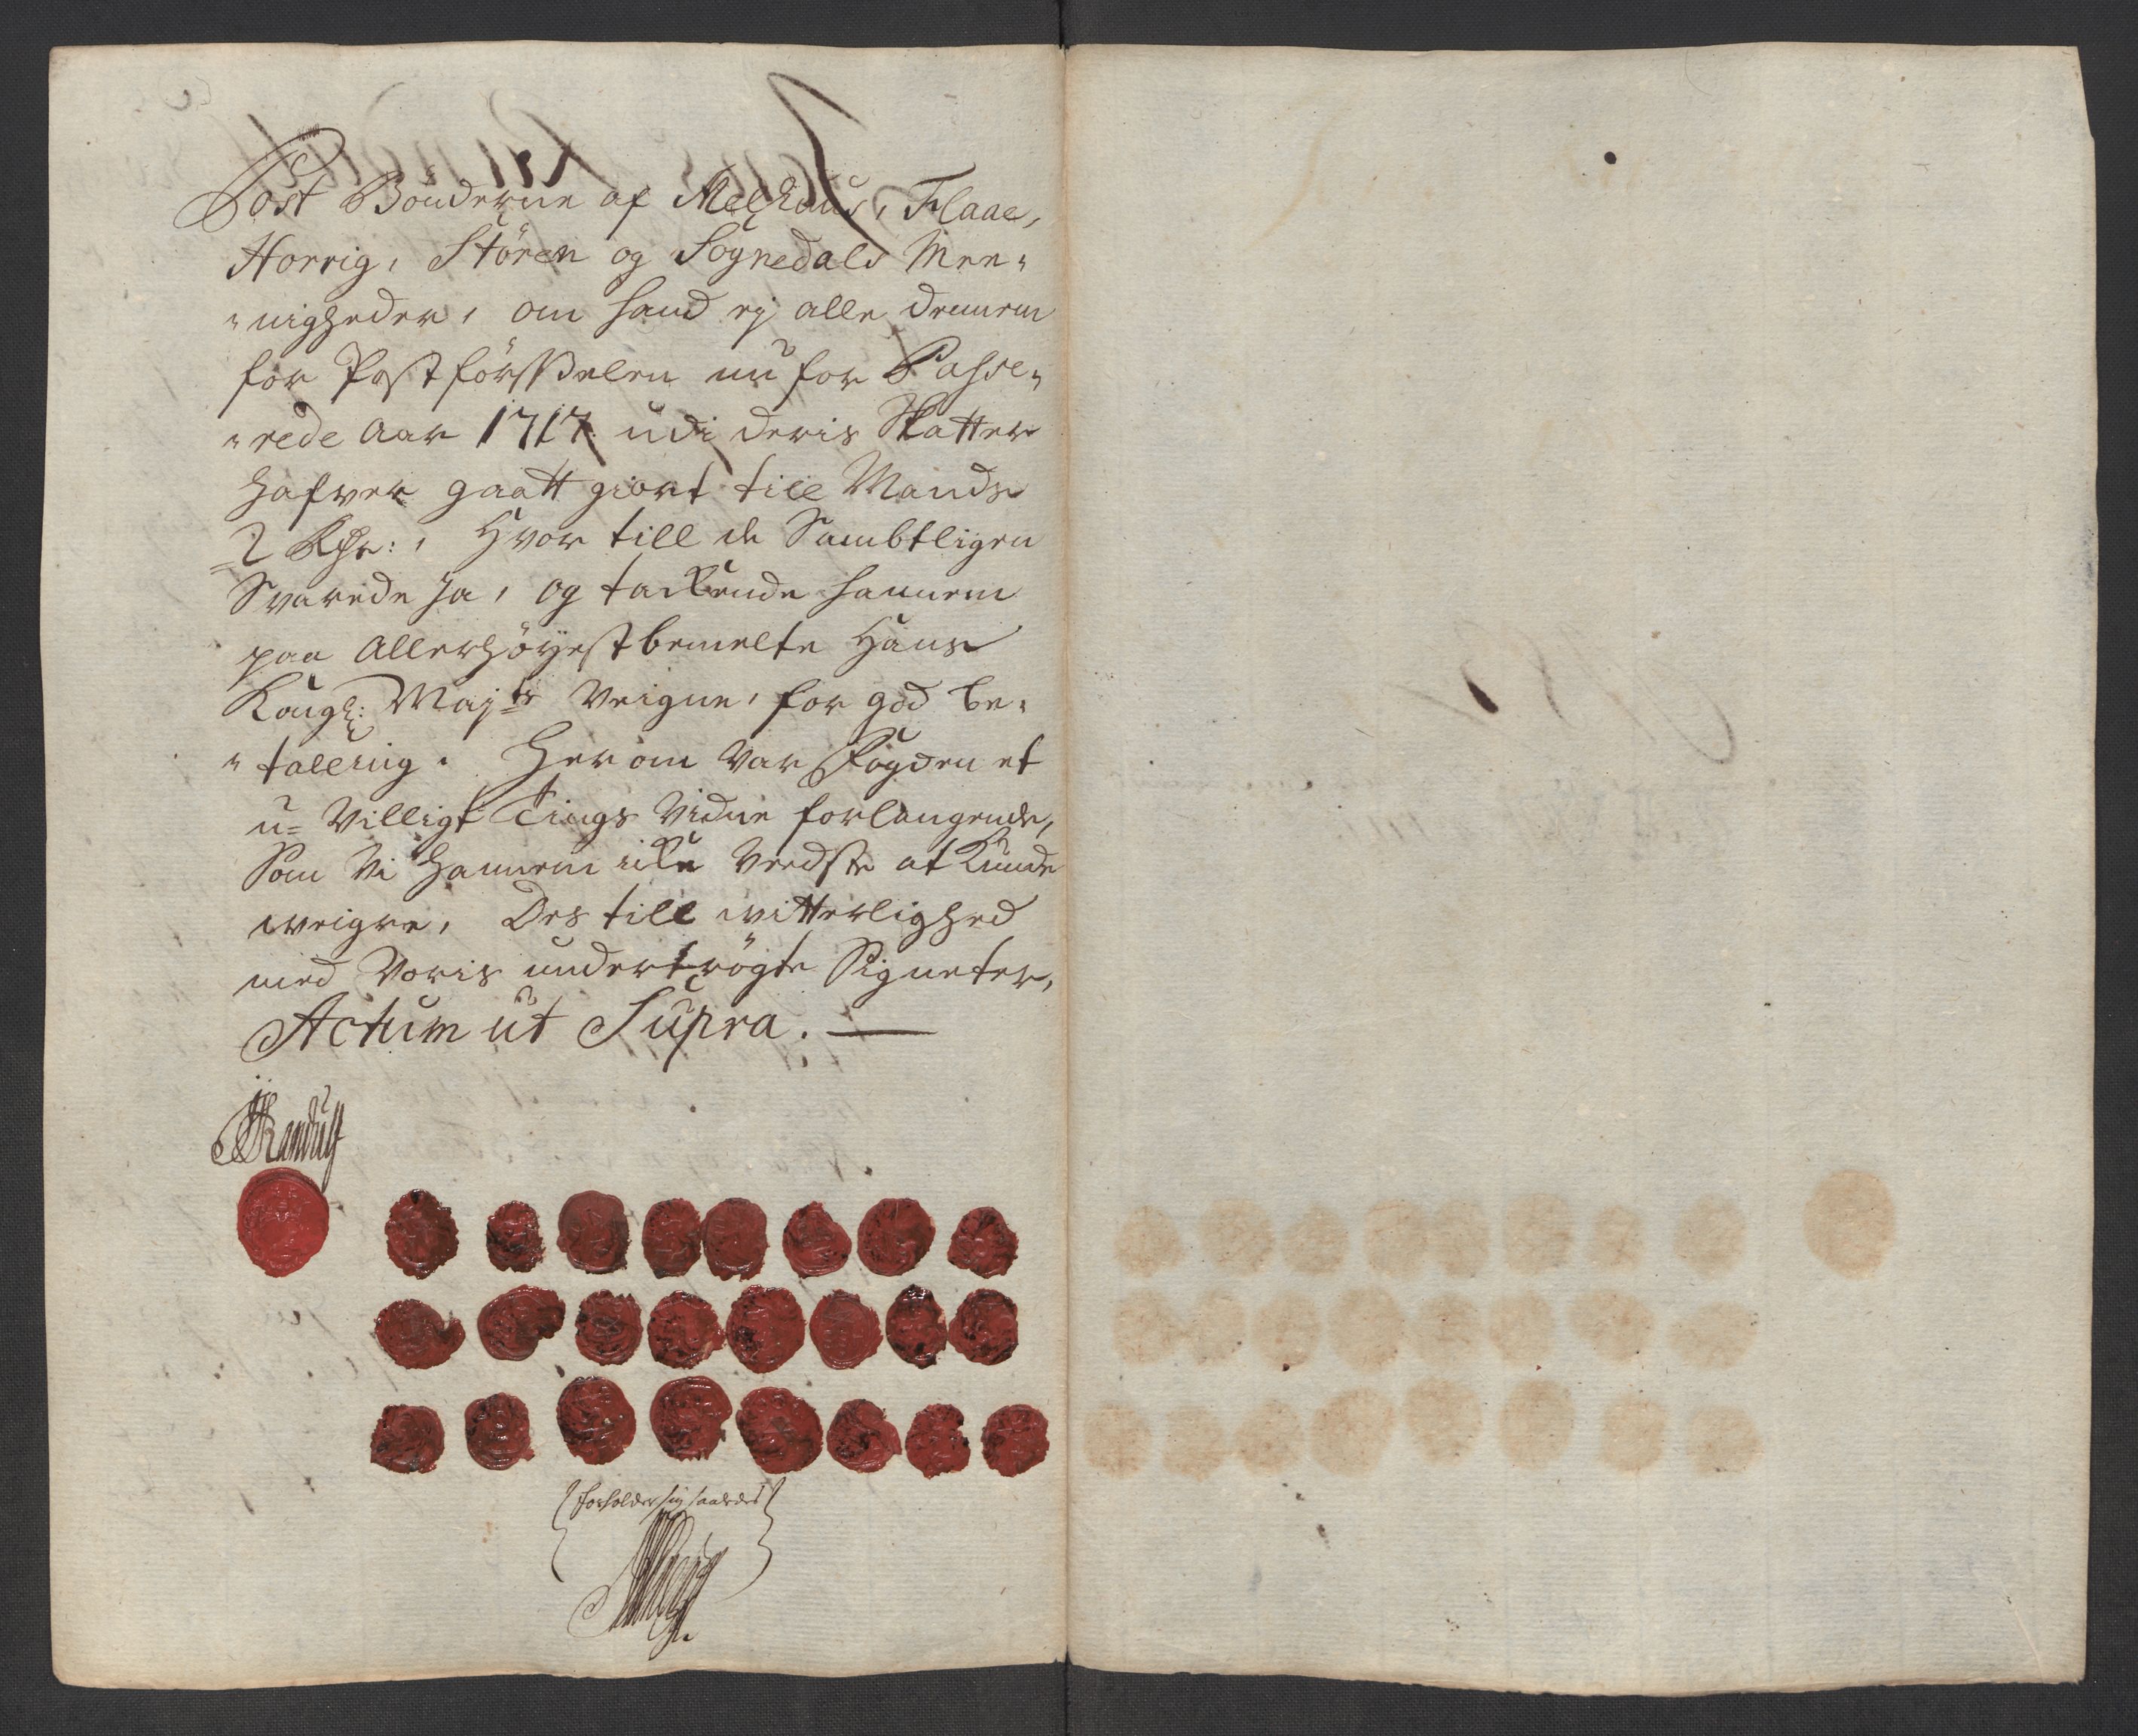 Post Bönderne af Melhuus, Flaae,
Horrig, Stören og Sognedals Men-
nigheder, om hand ej alle dennem
for Postförsselen nu for Passe-
rede Aar 1717 udi deris Skatter
hafver gaatt giort till Mands
2 Rdr:, Hvor till de Sambtligen
Svarede Ja, og tackende hannem
paa Allerhöyestbemelte Hans
Kongl: Majts Veigne, for god be-
talling. Her om Var Fogden et
u-Villigt Tings Vidne forlangende,
Som Vi hannem icke Veedste at Kunde
weigre, Des till witterlighed
med Voris undertrögte Signeter,
Actum ut Supra.
forholder sig saaledes